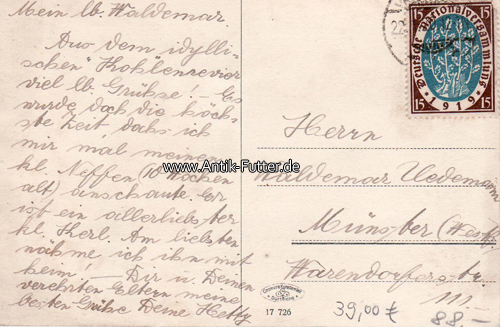 Mein lb. Waldemar.
Aus dem idylli-
schen "Kohlenrevier
viel lb. Grüße! – Es
wurde doch die höch-
ste Zeit, dass ich
mir mal meinen
kl. Neffen (10 Wochen
alt) anschaute. Er
ist ein allerliebster
kl. Kerl. Am liebsten
nähme ich ihn mit
heim! – Dir u. Deinen
verehrten Eltern meine
besten Grüße Deine Hetty
Deutsche Nationalversammlung
15 1919 15
Herrn
Waldemar Uedemann
Münster (Westf.
Warendorferstr.
111.
www.Antik-Futter.de
17 726
39,00 €
88.-